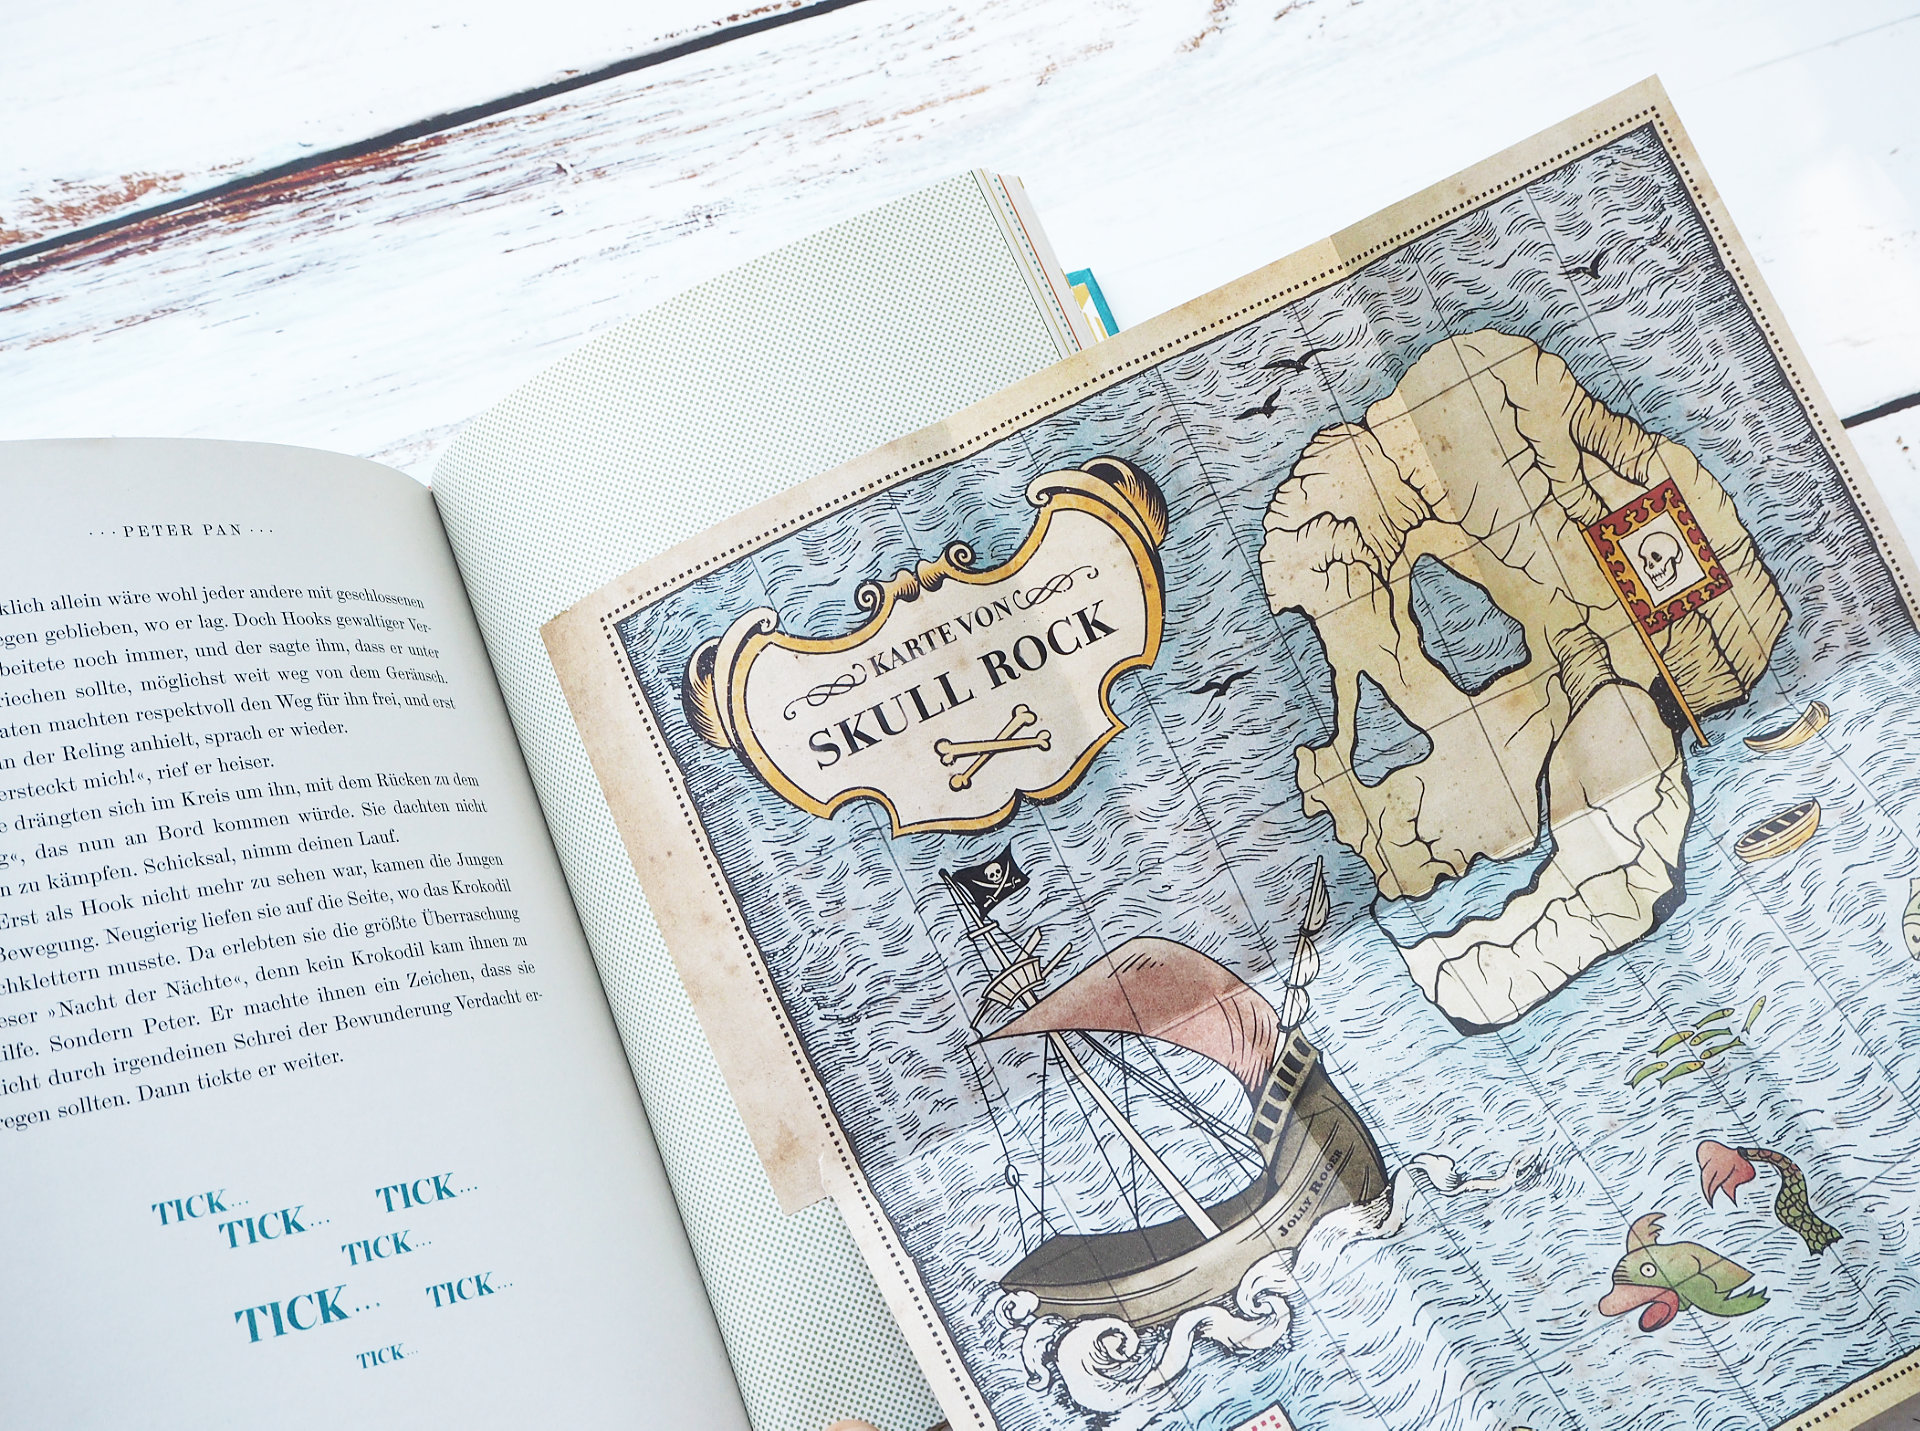 ··· PETER PAN ···
klich allein wäre wohl jeder andere mit geschlossenen
egen geblieben, wo er lag. Doch Hooks gewaltiger Ver-
beitete noch immer, und der sagte ihm, dass er unter
riechen sollte, möglichst weit weg von dem Geräusch.
aten machten respektvoll den Weg für ihn frei, und erst
an der Reling anhielt, sprach er wieder.
ersteckt mich!«, rief er heiser.
e drängten sich im Kreis um ihn, mit dem Rücken zu dem
g«, das nun an Bord kommen würde. Sie dachten nicht
n zu kämpfen. Schicksal, nimm deinen Lauf.
Erst als Hook nicht mehr zu sehen war, kamen die Jungen
Bewegung. Neugierig liefen sie auf die Seite, wo das Krokodil
chklettern musste. Da erlebten sie die größte Überraschung
eser »Nacht der Nächte«, denn kein Krokodil kam ihnen zu
ilfe. Sondern Peter. Er machte ihnen ein Zeichen, dass sie
icht durch irgendeinen Schrei der Bewunderung Verdacht er-
regen sollten. Dann tickte er weiter.
TICK...
TICK...
TICK...
TICK...
TICK...
TICK...
TICK...
KARTE VON
SKULL ROCK
JOLLY ROGER